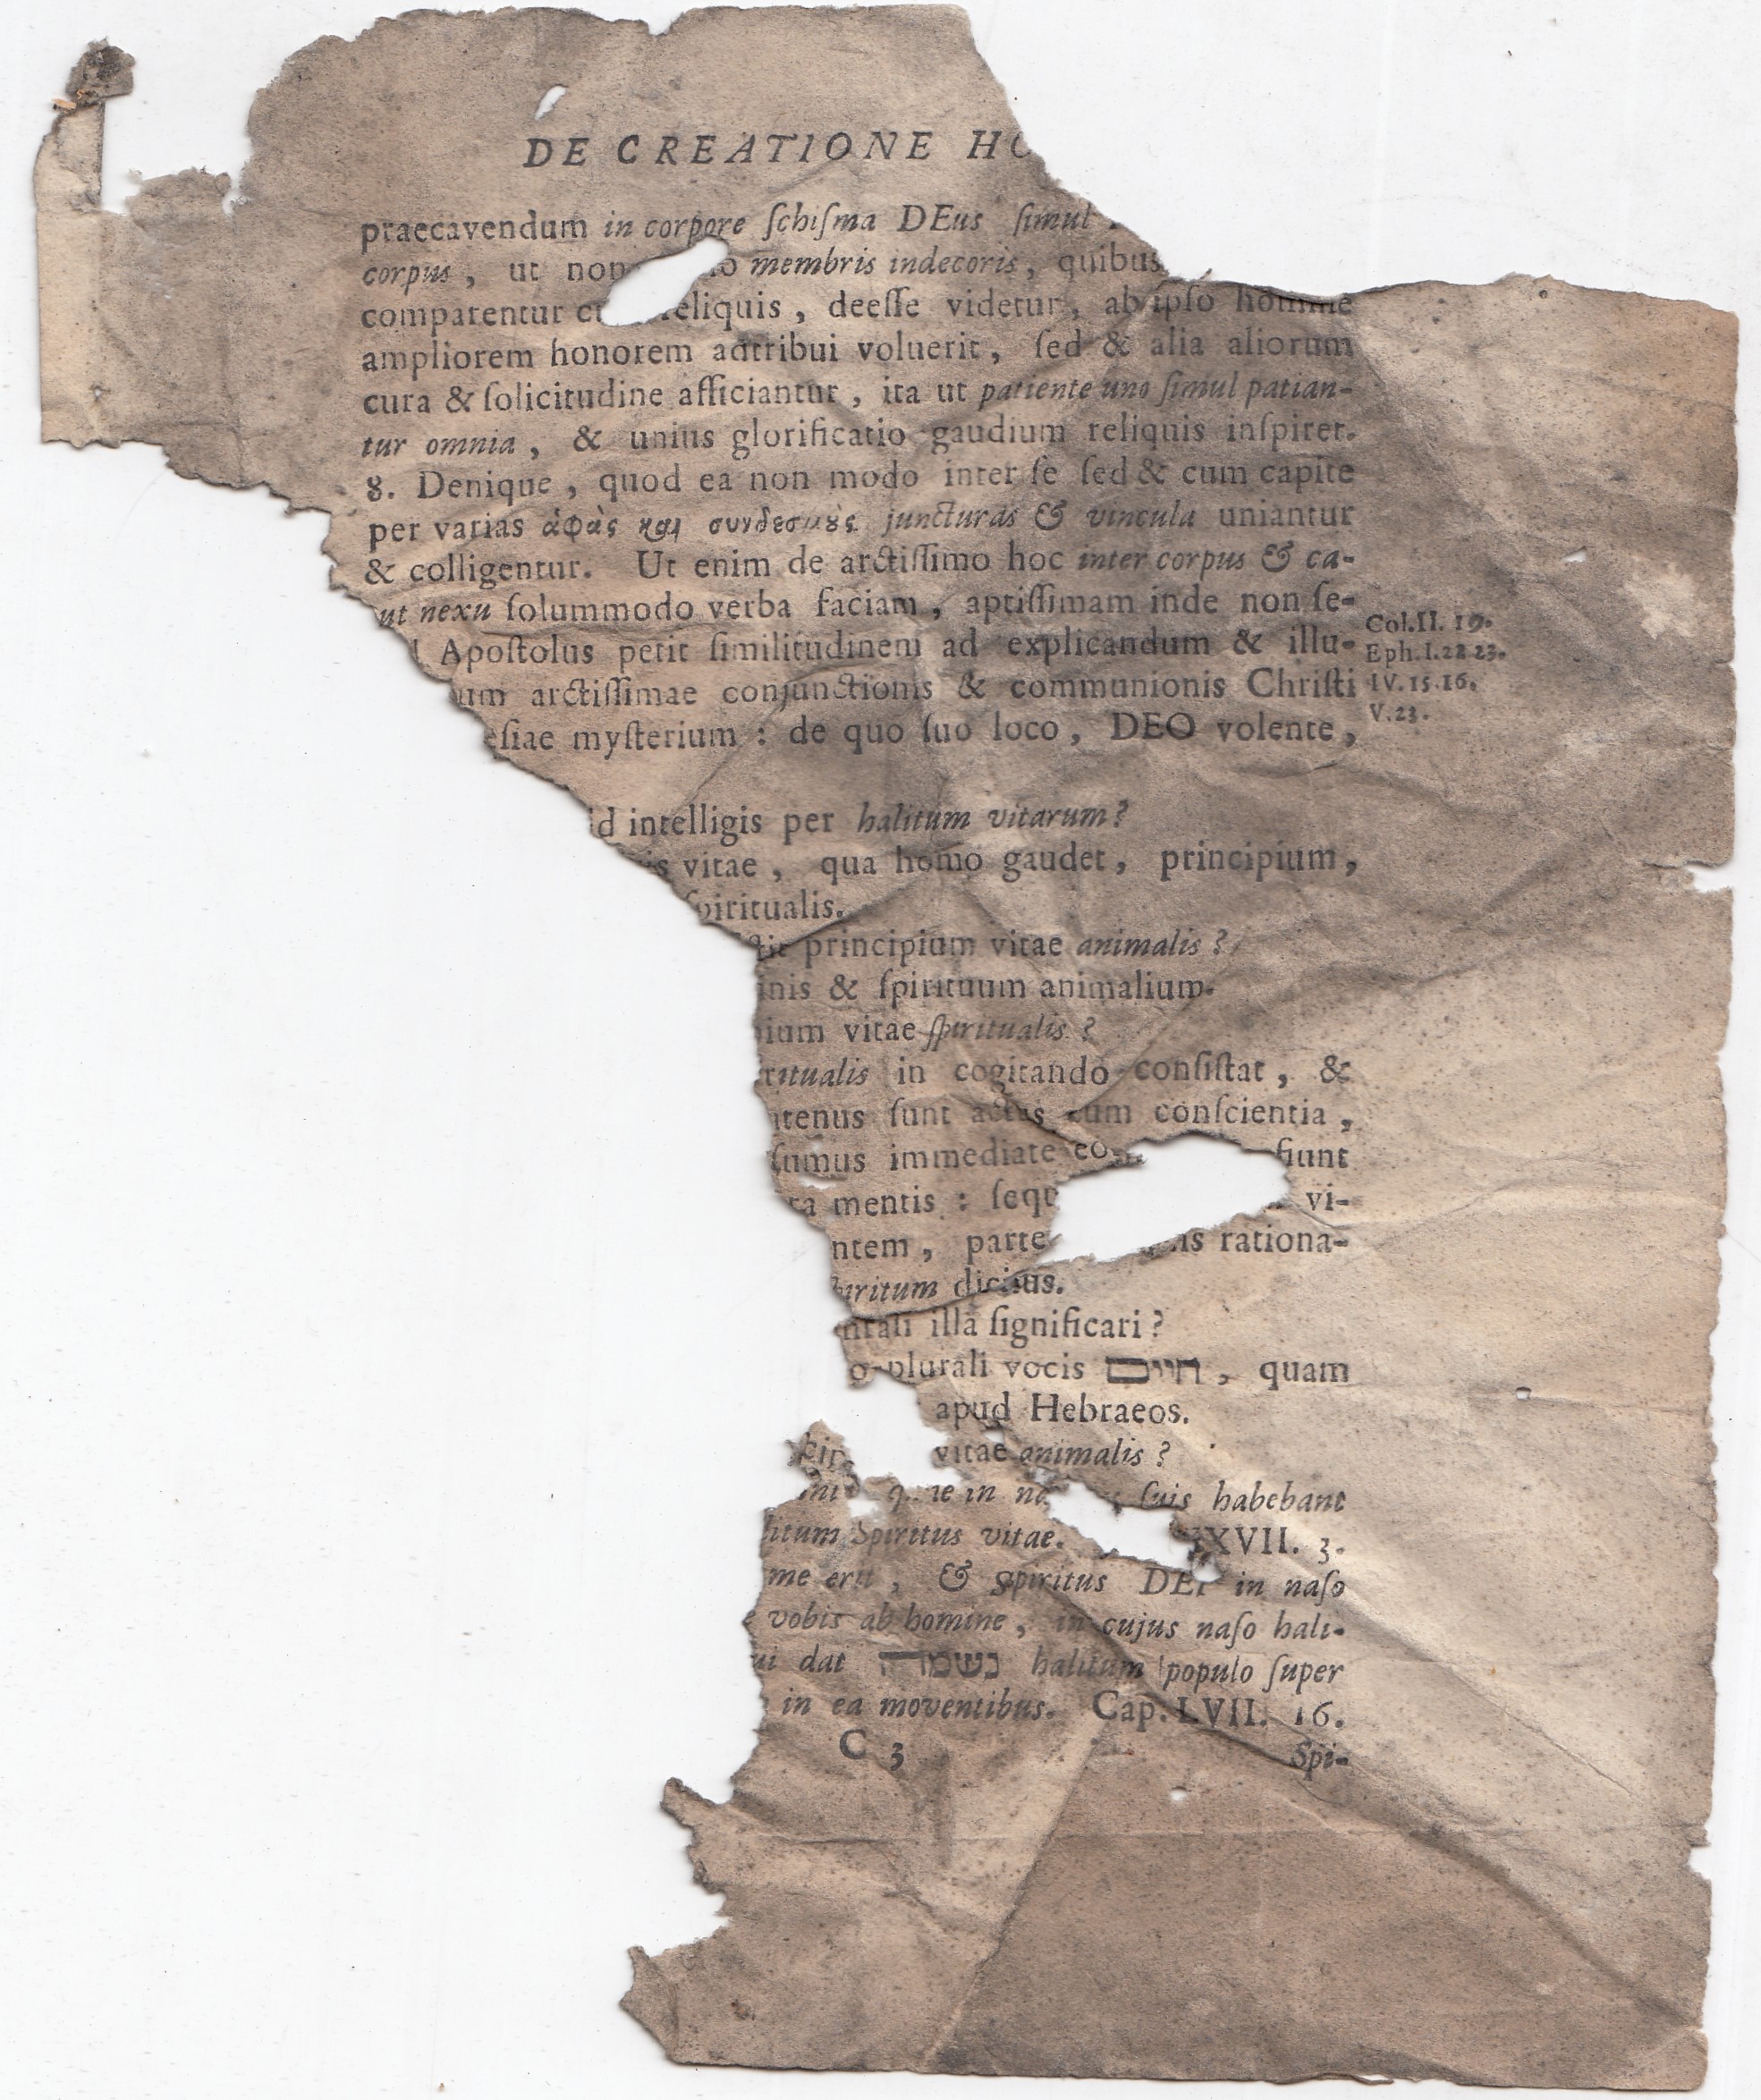 DE CREATIONE HO
praecavendum in corpore ſchiſma DEus ſimul
corpus, ut non membris indecoris, quibus
comparentur eliquis, deeſſe videtur, ab ipſo homine
ampliorem honorem adtribui voluerit, ſed & alia aliorum
cura & ſolicitudine afficiantur, ita ut patiente uno ſimul patian-
tur omnia, & unius glorificatio gaudium reliquis inſpiret.
8. Denique, quod ea non modo inter ſe ſed & cum capite
per varias ἁφὰς καὶ συνδεσμοὺς juncturas & vincula uniantur
& colligentur. Ut enim de arctiſſimo hoc inter corpus & ca-
ut nexu ſolummodo verba faciam, aptiſſimam inde non ſe-
Apoſtolus petit ſimilitudinem ad explicandum & illu-
um arctiſſimae conjunctionis & communionis Chriſti
eſiae myſterium: de quo ſuo loco, DEO volente,
Col. II. 19.
Eph. I. 22 23.
IV. 15. 16.
V. 23.
id intelligis per halitum vitarum?
is vitae, qua homo gaudet, principium,
ſpiritualis.
ſtit principium vitae animalis?
inis & ſpirituum animalium.
ium vitae ſpiritualis?
ritualis in cogitando conſiſtat, &
atenus ſunt actus cum conſcientia,
ſumus immediate co fiunt
ra mentis: ſequ vi-
ntem, parte is rationa-
piritum dicius.
ntali illa ſignificari?
o plurali vocis חיים, quam
apud Hebraeos.
vitae animalis?
in na ſuis habebant
litum Spiritus vitae. XXVII. 3.
me erit, & Spiritus DEI in naſo
e vobis ab homine, in cujus naſo hali-
ui dat נשמה halitum populo ſuper
in ea moventibus. Cap. LVII. 16.
C 3
Spi-